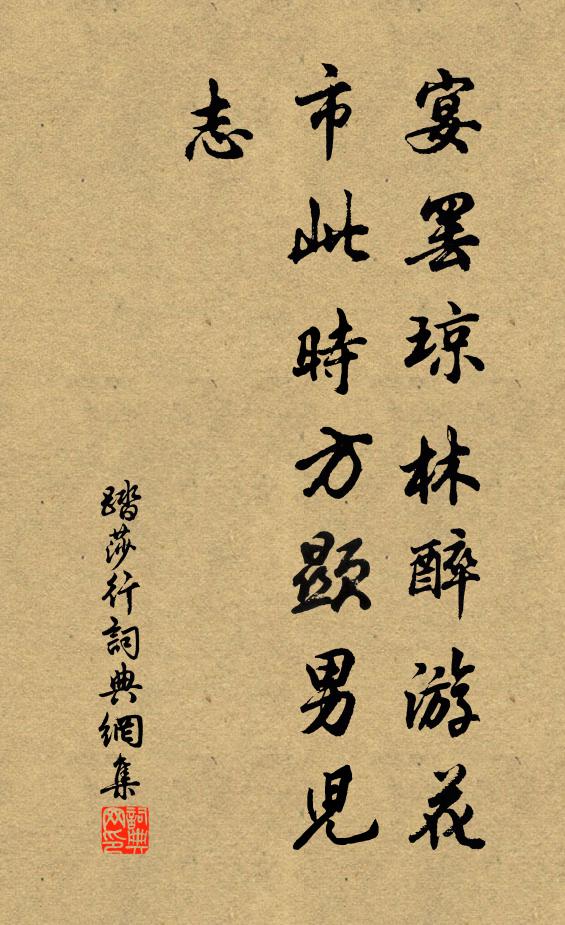 宴罷琼林醉游花
市此時方顕男児
志
踏莎行詞典網集
詞典
网印